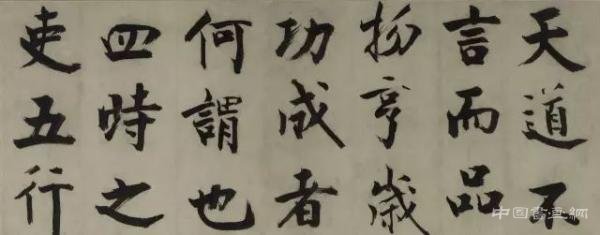 天道不
言而品
物亨歲
功成者
何謂也
四時之
吏五行
中国書画網